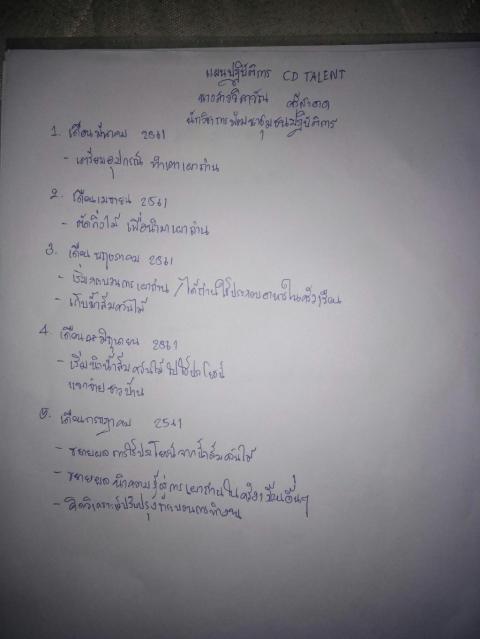 แผนปฏิบัติการ CD TALENT
นางสาววิดาวัน
นักวิชาการพัฒนาชุมชนปฏิบัติการ
1. เดือนมีนาคม 2561
- เตรียมอุปกรณ์ ทำเตาเผาถ่าน
2. เดือนเมษายน 2561
- ตัดกิ่งไม้ เพื่อนำมาเผาถ่าน
3. เดือนพฤษภาคม 2561
- เริ่มกระบวนการเผาถ่าน / ได้ถ่านใช้ประกอบอาหารในครัวเรือน
- เก็บน้ำส้มควันไม้
4. เดือนมิถุนายน 2561
- เริ่มนำน้ำส้มควันไม้ไปใช้ประโยชน์
แจกจ่ายชาวบ้าน
5. เดือนกรกฎาคม 2561
- ขยายผลการใช้ประโยชน์จากน้ำส้มควันไม้
- ขยายผลนำความรู้สู่การเผาถ่านในครัวเรือนอื่นๆ
- คิดวิเคราะห์ปรับปรุงกระบวนการทำงาน